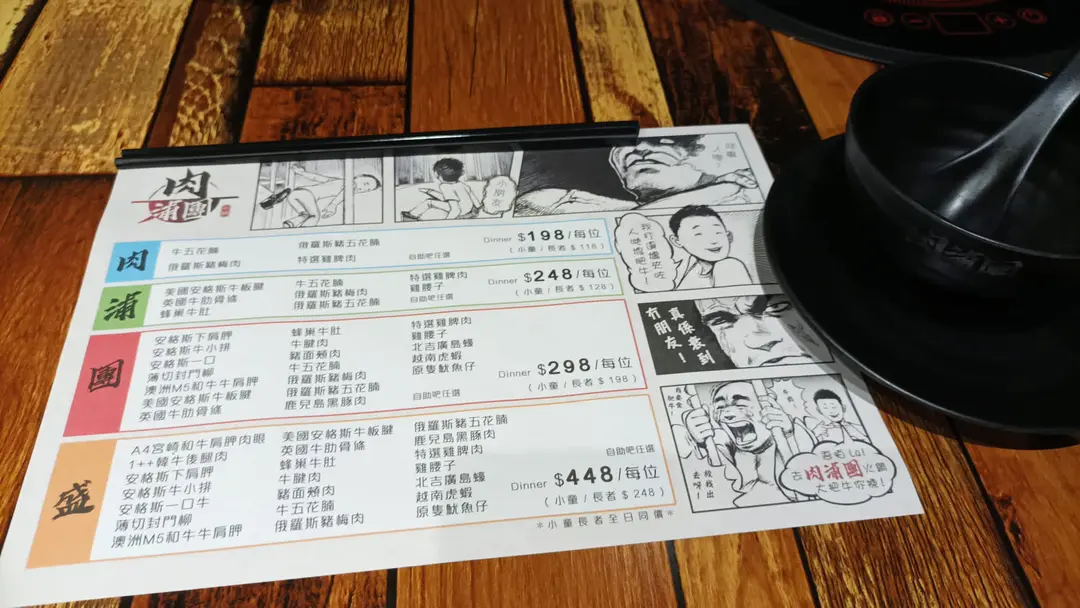 肉
浦團
小朋友
肉
牛五花腩
俄羅斯豬五花腩
俄羅斯豬梅肉
特選雞脾肉
自助吧任選
Dinner $198/每位
( 小童 / 長者 $ 118 )
浦
美國安格斯牛板腱
牛五花腩
特選雞脾肉
美國牛肋骨條
俄羅斯豬梅肉
雞腰子
蜂巢牛肚
俄羅斯豬五花腩
自助吧任選
Dinner $248/每位
( 小童 / 長者 $ 128 )
團
安格斯下肩胛
蜂巢牛肚
特選雞脾肉
安格斯牛小排
牛腱肉
雞腰子
安格斯一口
豬面頰肉
北吉廣島蠔
薄切封門柳
牛五花腩
越南虎蝦
澳洲M5和牛牛肩胛
俄羅斯豬梅肉
原隻魷魚仔
美國安格斯牛板腱
俄羅斯豬五花腩
英國牛肋骨條
鹿兒島黑豚肉
自助吧任選
Dinner $298/每位
( 小童 / 長者 $ 198 )
盛
A4宮崎和牛肩胛肉眼
美國安格斯牛板腱
俄羅斯豬五花腩
1++韓牛後腿肉
英國牛肋骨條
鹿兒島黑豚肉
安格斯下肩胛
蜂巢牛肚
特選雞脾肉
安格斯牛小排
牛腱肉
雞腰子
安格斯一口牛
豬面頰肉
北吉廣島蠔
薄切封門柳
牛五花腩
越南虎蝦
澳洲M5和牛牛肩胛
俄羅斯豬梅肉
原隻魷魚仔
自助吧任選
Dinner $448/每位
( 小童 / 長者 $ 248 )
*小童長者全日同價*
有朋友！
真係衰到
去肉浦團火鍋